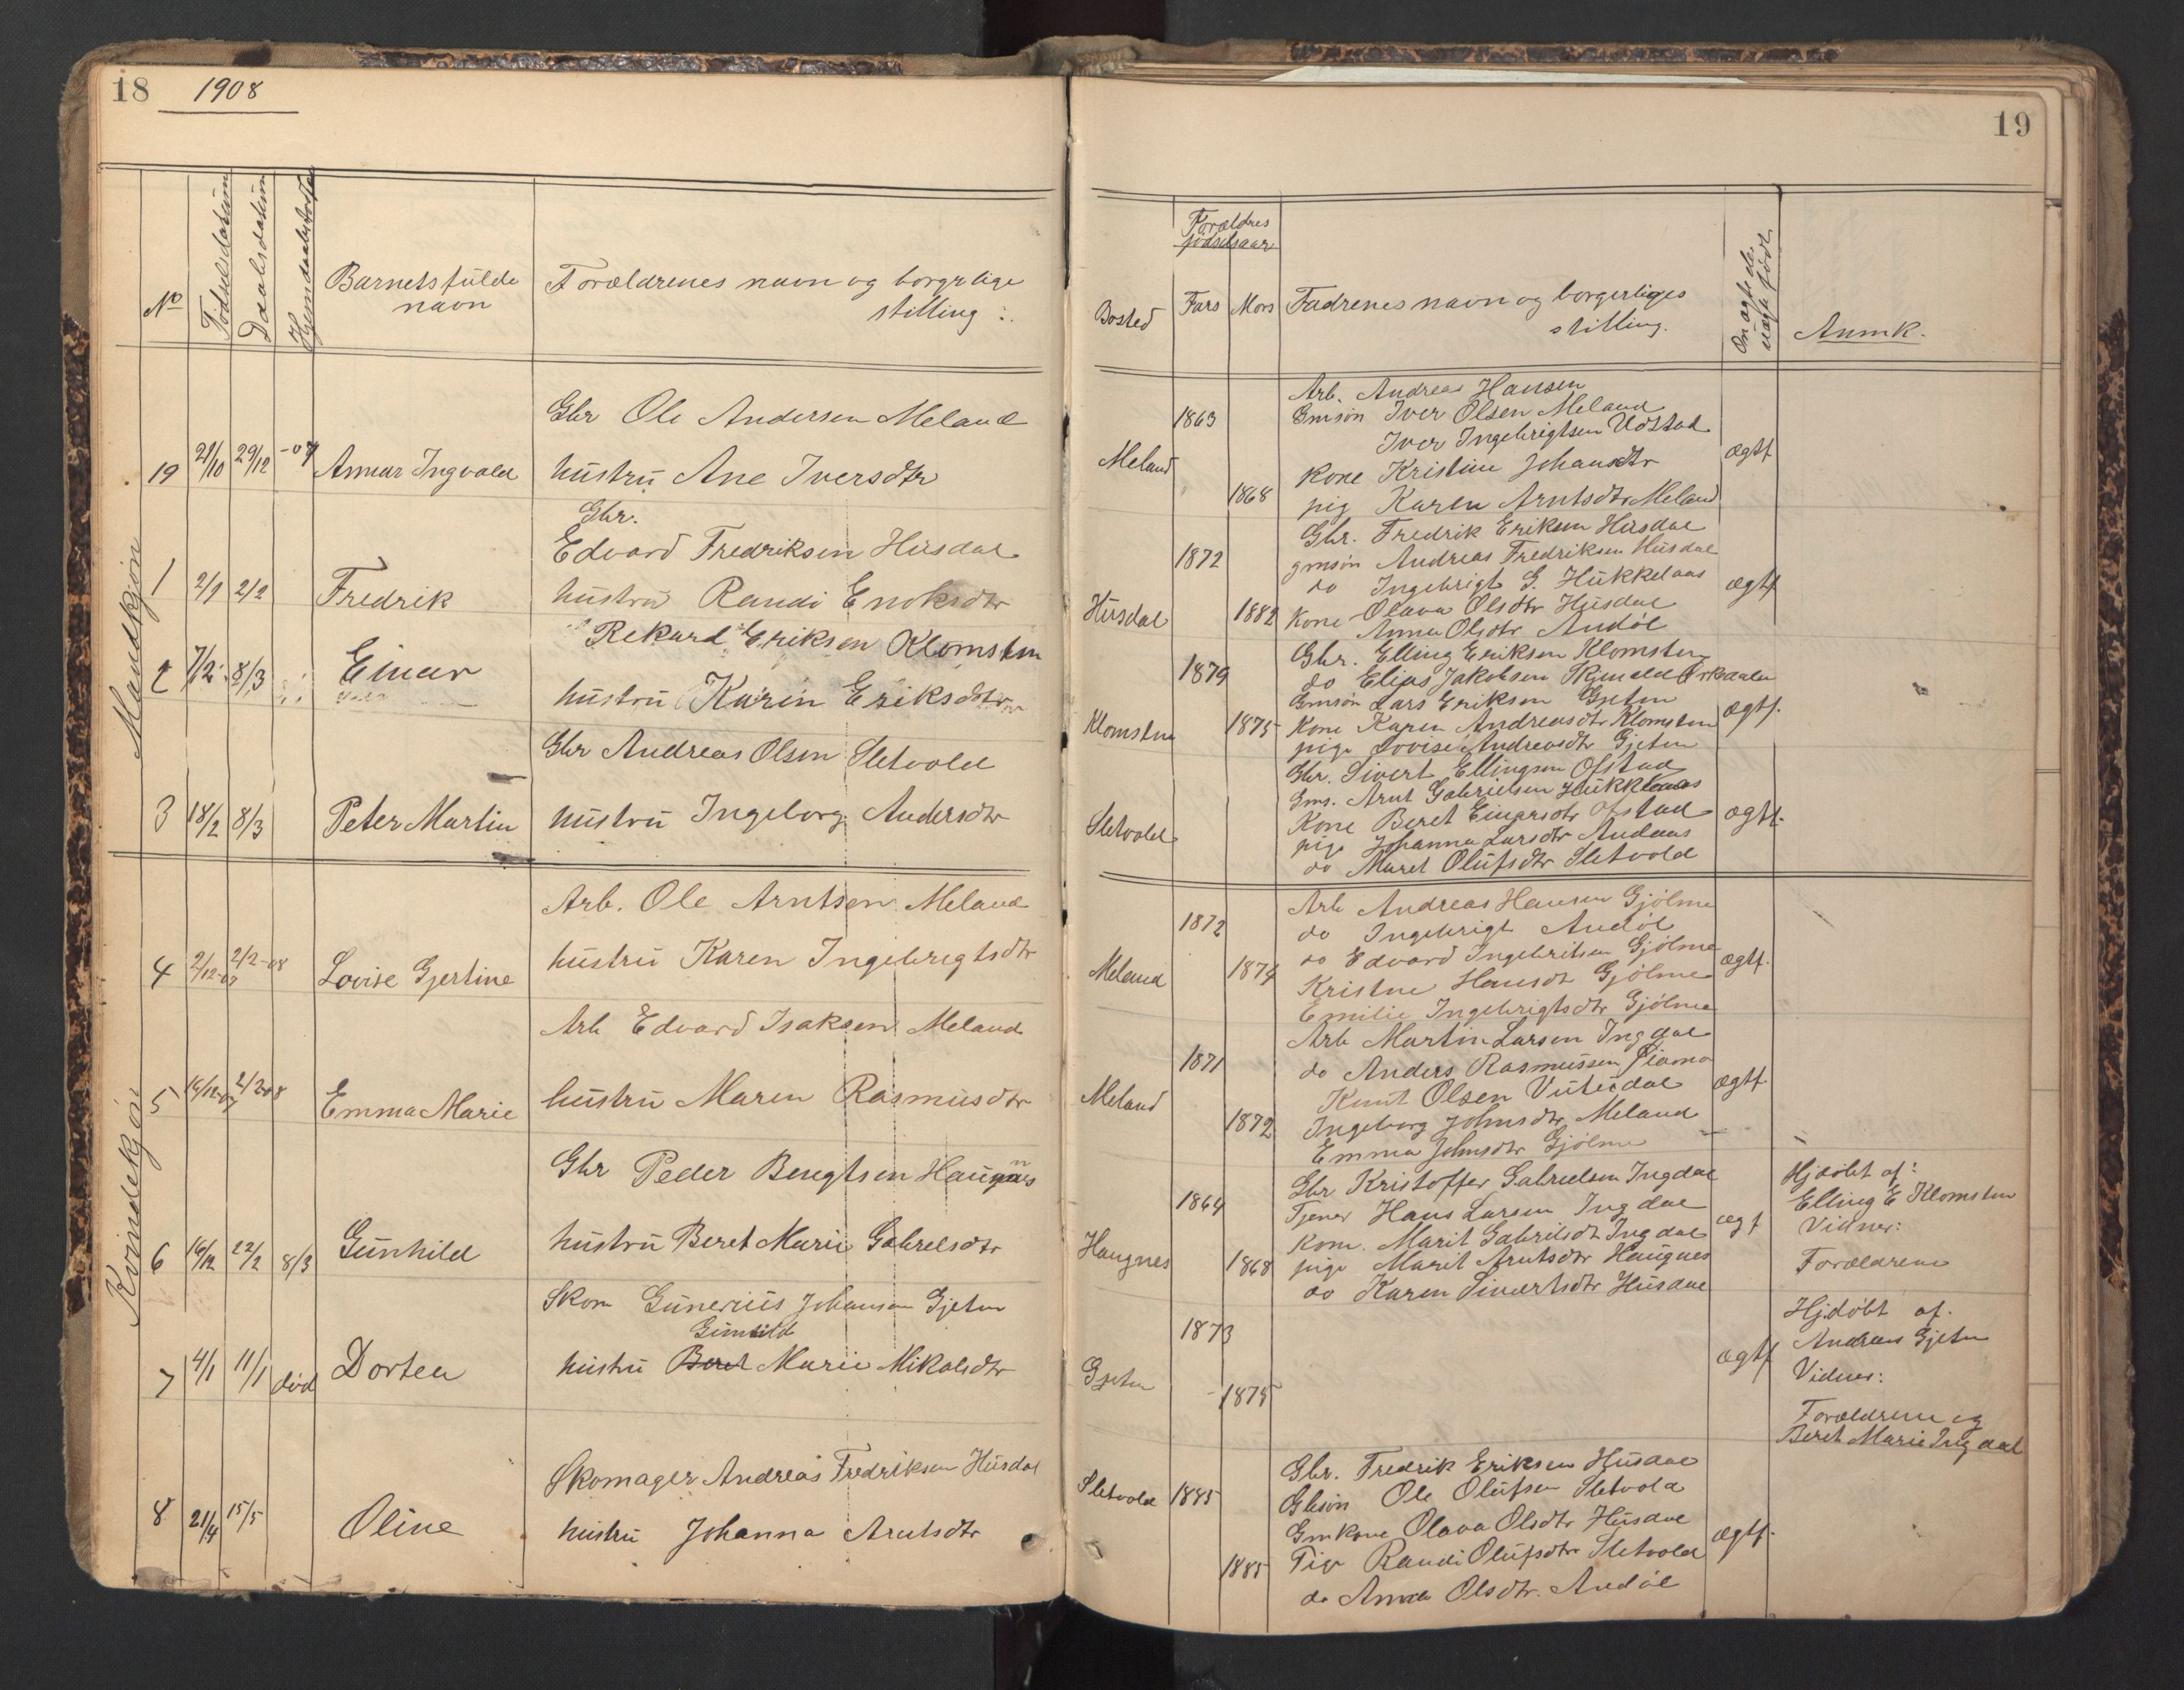 18 1908
No
Fødselsdatum
Daabsdatum
Hjemdaabsdatum
Barnets fulde
navn
Forældrenes navn og borgrlige
stilling :.
Mandkjøn
Gbr Ole Andersen Meland
19 21/10 29/12 -07 Annar Ingvald hustru Ane Iversdtr
Gbr.
Edvard Fredriksen Husdal
1 2/1 2/2 Fredrik hustru Randi Enoksdtr
Rekard Eriksen Klomsten
2 7/2 8/3 Einar
hustru Karen Eriksdtr
Gbr Andreas Olsen Sletvold
3 18/2 8/3 Peter Martin hustru Ingeborg Andersdtr
Kvindekjøn
Arb. Ole Arntsen Meland
4 2/12-07 2/2-08 Lovise Gjertine hustru Karen Ingebrigtsdtr
Arb Edvard Isaksen Meland
5 16/12-07 2/2-08 Emma Marie hustru Maren Rasmusdtr
Gbr Peder Bengtsen Haugnes
6 16/12 22/2 8/3 Gunhild hustru Beret Marie Gabrelsdtr
Skom Gunerius Johansen Gjeten
Gunhild
7 4/1 11/1 død Dortea hustru Beret Marie Mikalsdtr
Skomager Andreas Fredriksen Husdal
8 21/4 15/5 Oline hustru Johanna Arntsdtr
19
Forældres
fødselsaar
Bosted Fars Mors Fadrenes navn og borgerliges
stilling.
Om ægte el.
uægte født
Anmk.
Arb. Andreas Hansen
1863 Gmsøn Iver Olsen Meland
Iver Ingebrigtsen Udstad
Meland Kone Kristine Johansdtr ægtf
1868 pig Karen Arntsdtr Meland
Gbr. Fredrik Eriksen Husdal
1872 gmsøn Andreas Fredriksen Husdal
do Ingebrigt G. Hukkelaas ægtf
Husdal 1882 Kone Olava Olsdtr Husdal
Anna Olsdtr Andøl
Gbr. Elling Eriksen Klomsten
1879 do Elias Jakobsen Skjenald Orkedalen
Gmsøn Lars Eriksen Gjeten
Klomsten 1875 Kone Karen Andreasdtr Klomsten ægtf.
pige Lovise Andreasdtr Gjeten
Gbr. Sivert Ellingsen Ofstad
Gms. Arnt Gabrielsen Hukkelaas
Sletvold Kone Beret Einarsdtr Ofstad ægtf.
pige Johanna Larsdtr Andaas
do Maret Olufsdtr Sletvold
Arb Andreas Hansen Gjølme
1872 do Ingebrigt Andøl
do Edvard Ingebritsen Gjølme
Meland 1874 Kristine Hansdt Gjølme ægtf.
Emilie Ingebrigtsdtr Gjølme
Arb Martin Larsen Ingdal
1871 do Anders Rasmussen
Meland Knut Olsen Vutudal ægtf
1872 Ingeborg Johnsdtr Meland
Emma Johnsdtr Gjølme
Gbr Kristoffer Gabrielsen Ingdal
1864 Tjener Hans Larsen Ingdal
Haugnes Kone. Marit Gabrilsdt Ingdal ægt
1868 pige Marit Arntsdtr Haugnes
do Karen Sivertsdtr Husdal
Hjdøbt af:
Elling E Klomsten
Vidner:
Forældrene
1873
Gjeten ægtf
1875
Hjdøbt af.
Andreas Gjeten
Vidner:
Forældrene og
Beret Marie Ingdal
Gbr. Fredrik Eriksen Husdal
Sletvold 1885 Gbsøn Ole Olufsen Sletvold
Gmkone Olava Olsdtr Husdal
1885 Pige Randi Olufsdtr Sletvold ægtf.
do Anna Olsdtr. Andøl